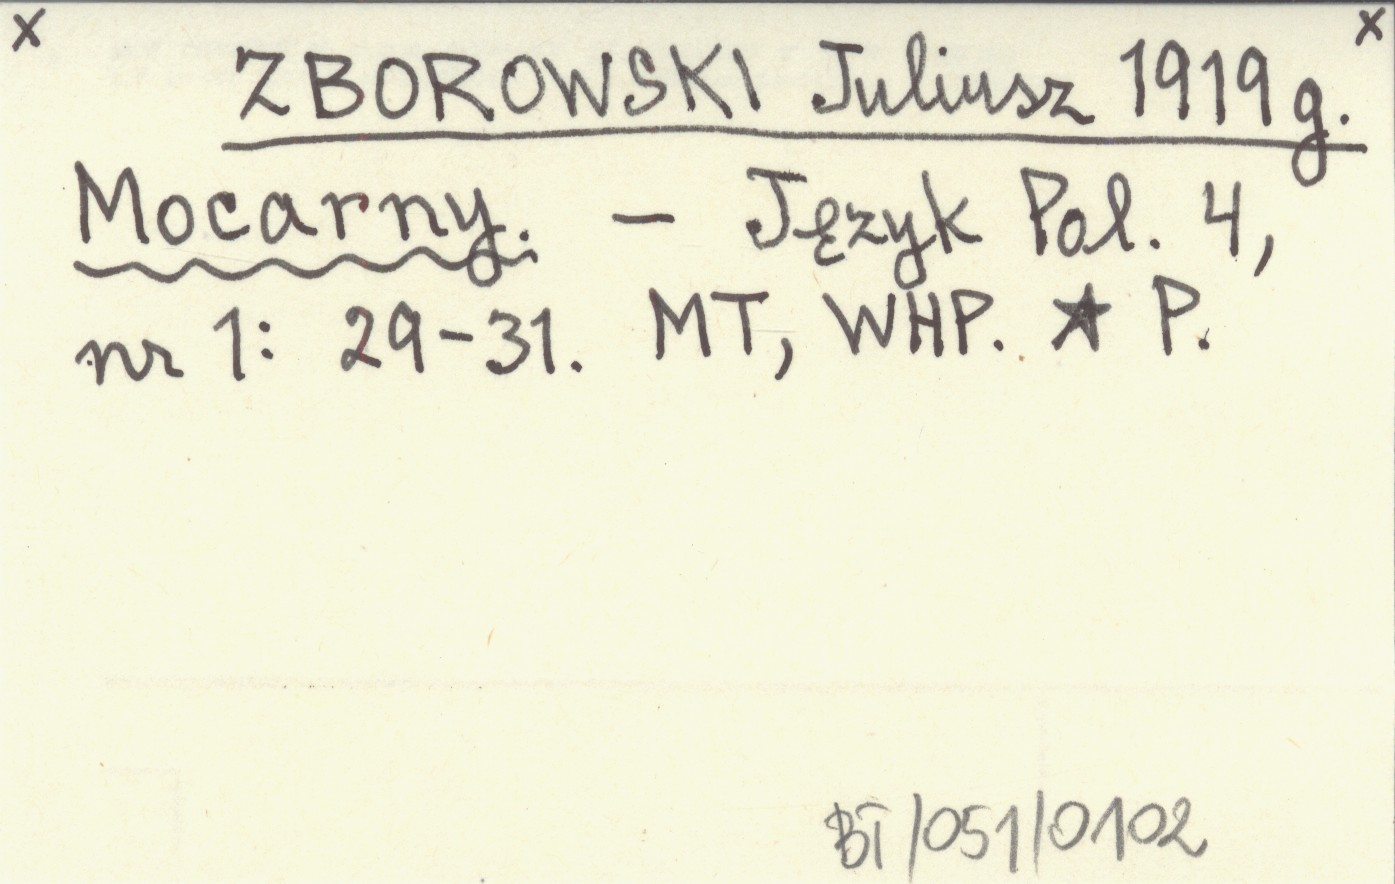 x x
ZBOROWSKI Juliusz 1919 g.
Mocarny. - Język Pol. 4,
nr 1: 29-31. MT, WHP. ★ P.
BT/051/0102